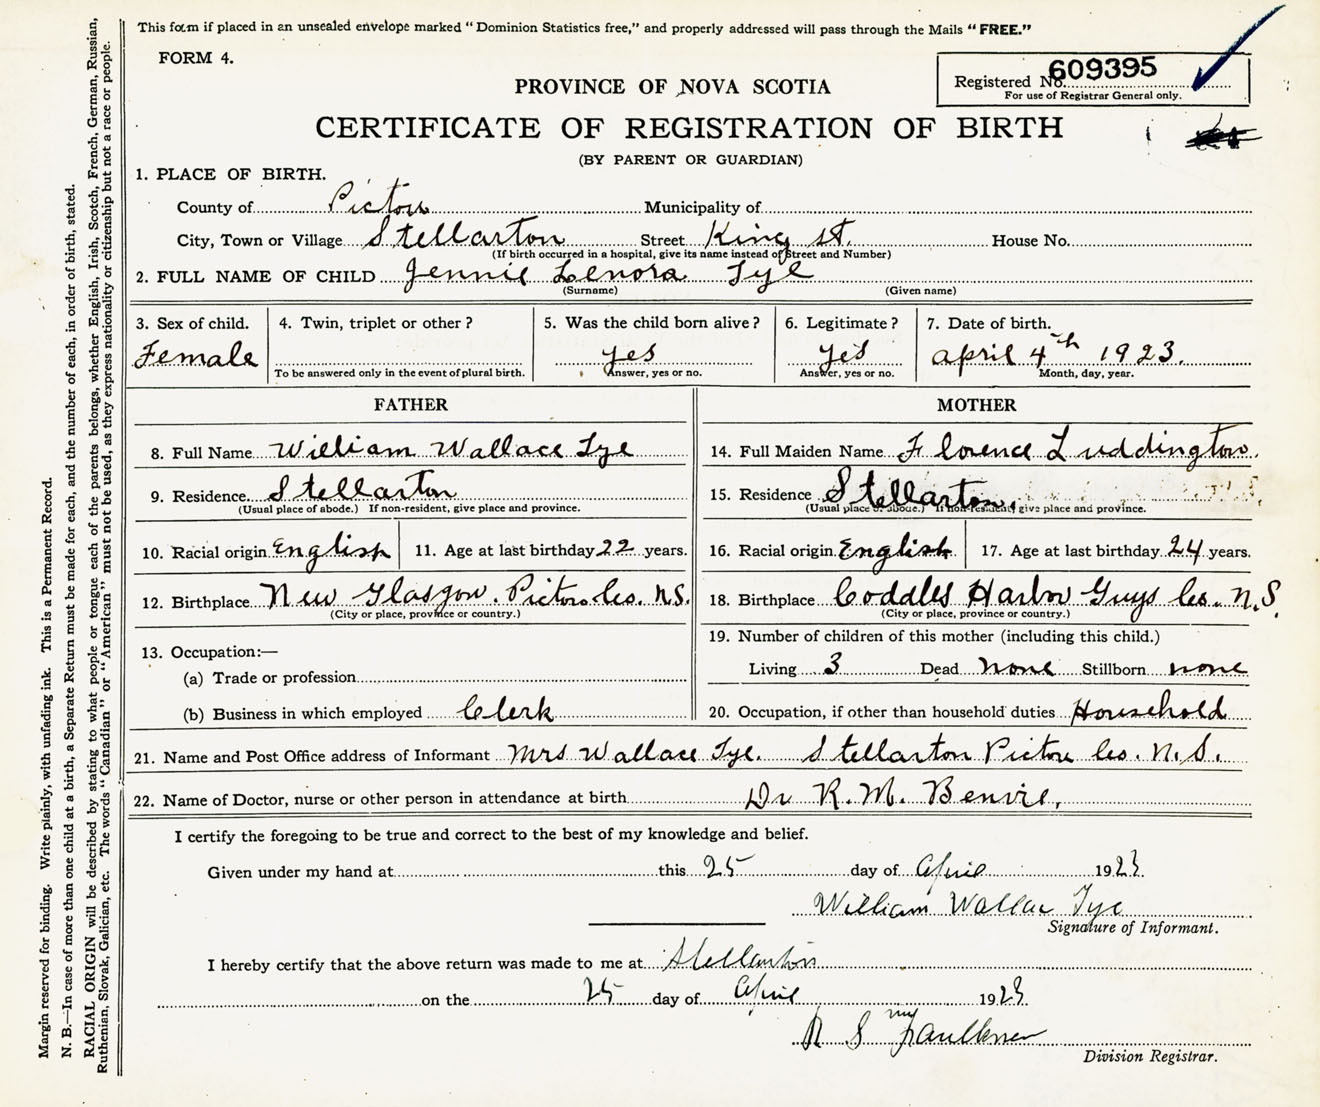 This form if placed in an unsealed envelope marked "Dominion Statistics free," and properly addressed will pass through the Mails "FREE."
FORM 4.
Registered No. 609395
For use of Registrar General only.
PROVINCE OF NOVA SCOTIA
CERTIFICATE OF REGISTRATION OF BIRTH
(BY PARENT OR GUARDIAN)
1. PLACE OF BIRTH.
County of Pictou Municipality of
City, Town or Village Stellarton Street King St. House No.
(If birth occurred in a hospital, give its name instead of Street and Number)
2. FULL NAME OF CHILD Jennie Lenora Tye
(Surname) (Given name)
3. Sex of child. 4. Twin, triplet or other? 5. Was the child born alive? 6. Legitimate? 7. Date of birth.
Female yes yes April 4th 1923.
To be answered only in the event of plural birth. Answer, yes or no. Answer, yes or no. Month, day, year.
FATHER
8. Full Name William Wallace Tye
9. Residence. Stellarton
(Usual place of abode.) If non-resident, give place and province.
10. Racial origin English 11. Age at last birthday 22 years.
12. Birthplace New Glasgow. Pictou Co. N.S.
(City or place, province or country.)
13. Occupation:—
(a) Trade or profession
(b) Business in which employed Clerk
MOTHER
14. Full Maiden Name Florence Luddington.
15. Residence Stellarton.
(Usual place of abode.) If non-resident, give place and province.
16. Racial origin English 17. Age at last birthday 24 years.
18. Birthplace Coddles Harbor Guys Co. N.S.
(City or place, province or country.)
19. Number of children of this mother (including this child.)
Living 3 Dead none Stillborn none
20. Occupation, if other than household duties Household
21. Name and Post Office address of Informant Mrs Wallace Tye. Stellarton Pictou Co. N.S.
22. Name of Doctor, nurse or other person in attendance at birth Dr R. M. Benvie.
I certify the foregoing to be true and correct to the best of my knowledge and belief.
Given under my hand at this 25 day of April 1923.
William Wallace Tye
Signature of Informant.
I hereby certify that the above return was made to me at Stellarton
on the 25 day of April 1923.
R S Faulkner
Division Registrar.
Margin reserved for binding. Write plainly, with unfading ink. This is a Permanent Record.
N. B.—In case of more than one child at a birth, a Separate Return must be made for each, and the number of each, in order of birth, stated.
RACIAL ORIGIN will be described by stating to what people or tongue each of the parents belongs, whether English, Irish, Scotch, French, German, Russian,
Ruthenian, Slovak, Galician, etc. The words "Canadian" or "American" must not be used, as they express nationality or citizenship but not a race or people.